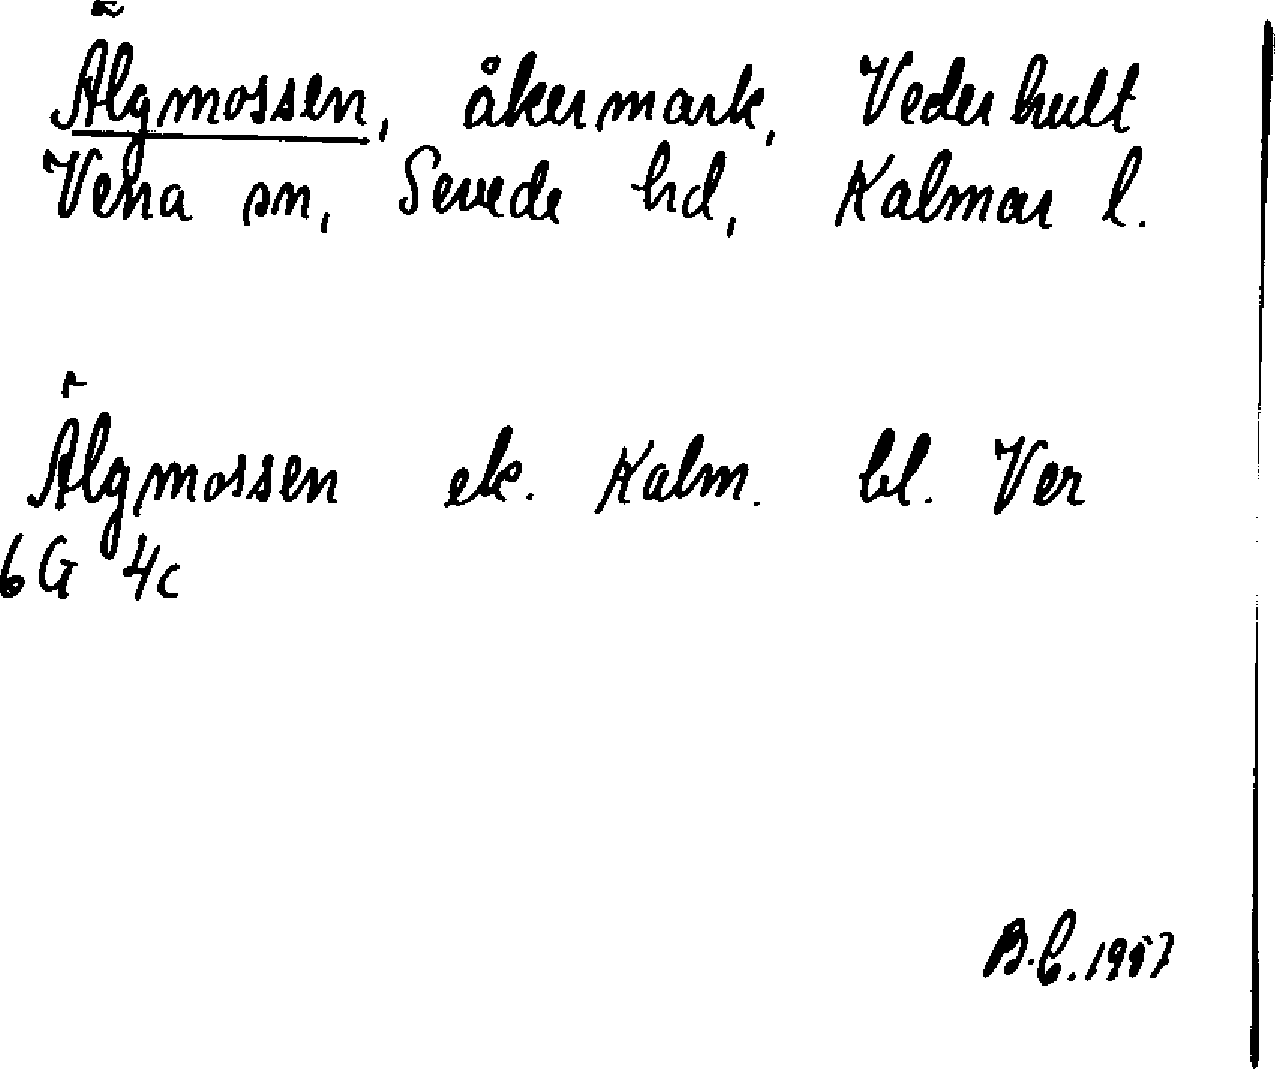 Älgmossen, åkermark, Vederhult
Vena sn, Sevede hd, Kalmar l.
Älgmossen ek. Kalm. bl. Ver
6G 4c
B.C. 1957